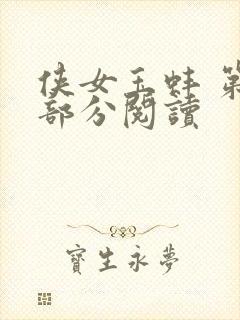 侠女玉蚌 第
部分閱讀
寶生永夢